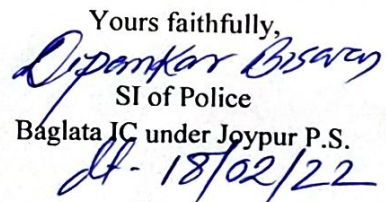 Yours faithfully,
Dipankar Biswas
SI of Police
Baglata IC under Joypur P.S.
dt- 18/02/22